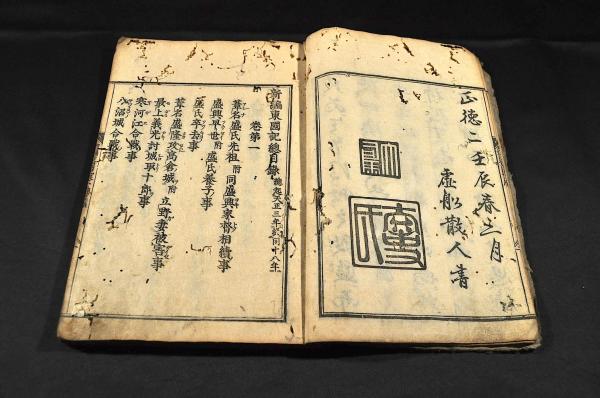 正徳二壬辰春三月
虚舩散人書
新編東國記總目錄 總起天正三年終同十八年
卷第一
葦名盛氏先祖附同盛興家督相續事
盛興早世附盛氏養子事
盛氏卒去事
葦名盛隆攻高倉城附立野妻被害事
最上義光討城取十郎事
寒河江合戰事
八沼城合戰事